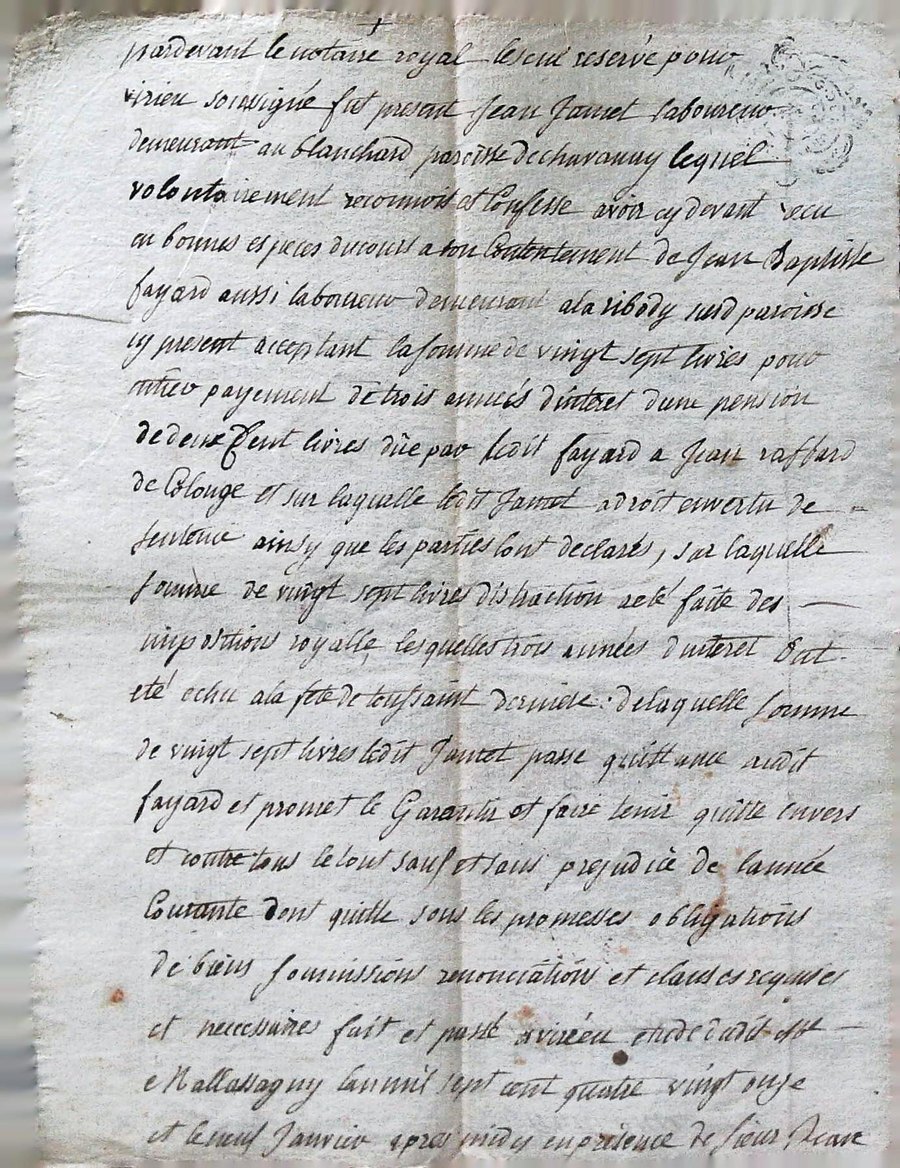 pardevant le notaire royal le seul reservé pour
virieu soussigné fut present Jean Jamet laboureur
demeurant au blanchard paroisse de chavanay lequel
volontairement reconnoit et Confesse avoir cy devant recu
en bonnes especes du cours a son Contentement de Jean Baptiste
fayard aussi laboureur demeurant a la ribody susd paroisse
cy present acceptant la somme de vingt sept livres pour
entier payement de trois années dinteret dune pension
de deux Cent livres düe par ledit fayard a Jean raffard
de Colonge et sur laquelle ledit Jamet a droit en vertu de
sentence ainsy que les parties lont declarés, sur laquelle
somme de vingt sept livres distraction a eté faite des
impositions royalle, lesquelles trois années dinteret Ont
eté echu a la fete de toussaint derniere : de laquelle somme
de vingt sept livres ledit Jamet passe quittance audit
fayard et promet le Garantir et faire tenir quitte envers
et contre tous le tout sauf et sans prejudice de lannée
Courante dont quitte sous les promesses obligations
de biens soumissions renonciations et clauses requises
et necessaires fait et passé a virieu etude dudit
Mallassagny lan mil sept cent quatre vingt onze
et le neuf Janvier apres midy en presence de sieur